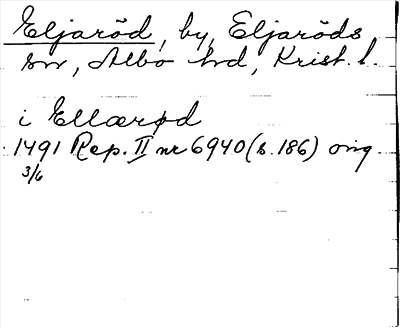 Eljaröd, by, Eljaröds
sn, Albo hd, Krist. l.
i Ellærød
1491 Rep. II nr 6940 (s. 186) orig.
3/6